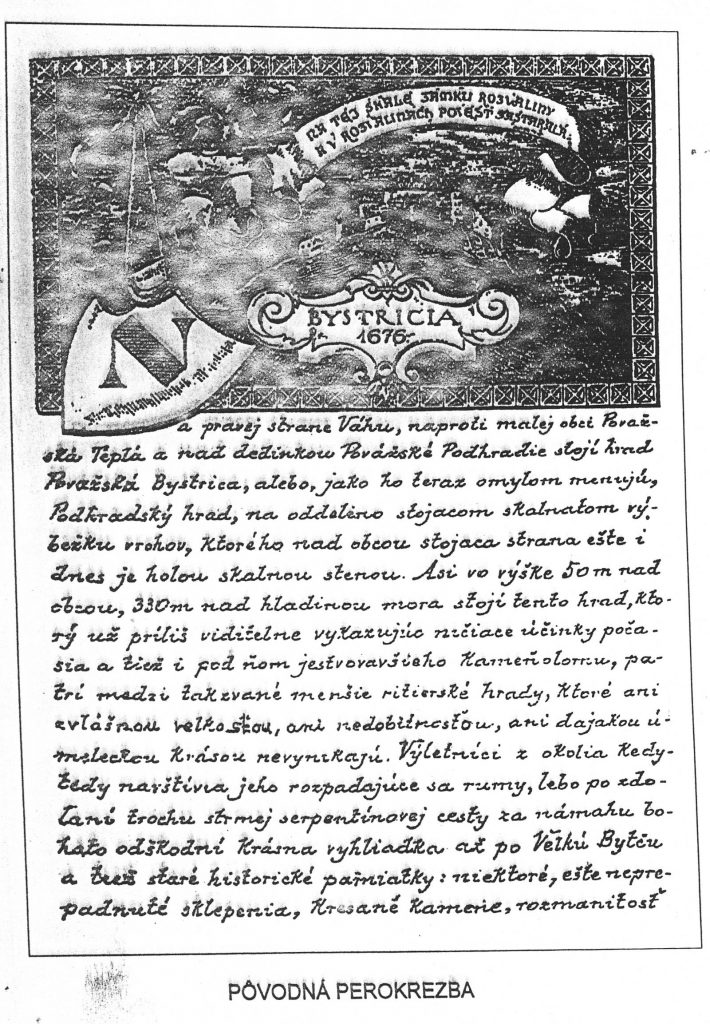 NA TEJ SKALE ZÁMKU ROZVALINY
A V ROZVALINÁCH POVESŤ ZASTARALÁ.
BYSTRICIA
1676
N
a pravej strane Váhu, naproti malej obci Považ-
ská Teplá a nad dedinkou Považské Podhradie stojí hrad
Považská Bystrica, alebo, jako ho teraz omylom menujú,
Podhradský hrad, na oddelěno stojacom skalnatom vý-
bežku vrchov, ktorého nad obcou stojaca strana ešte i
dnes je holou skalnou stenou. Asi vo výške 50m nad
obcou, 330m nad hladinou mora stojí tento hrad, kto-
rý už príliš viditelne vykazujúc ničiace účinky poča-
sia a tiež i pod ňom jestvovavšieho kameňolomu, pa-
trí medzi takzvané menšie ritierské hrady, ktoré ani
zvlášnou velkosťou, ani nedobitnosťou, ani dajakou ú-
meleckou krásou nevynikajú. Výletníci z okolia kedy-
tedy navštívia jeho rozpadajúce sa rumy, lebo po zdo-
laní trochu strmej serpentínovej cesty za námahu bo-
hato odškodní krásna vyhliadka až po Velkú Bytču
a tiež staré historické pamiatky: niektoré, ešte nepre-
padnuté sklepenia, kresané kamene, rozmanitosť
PÔVODNÁ PEROKREZBA